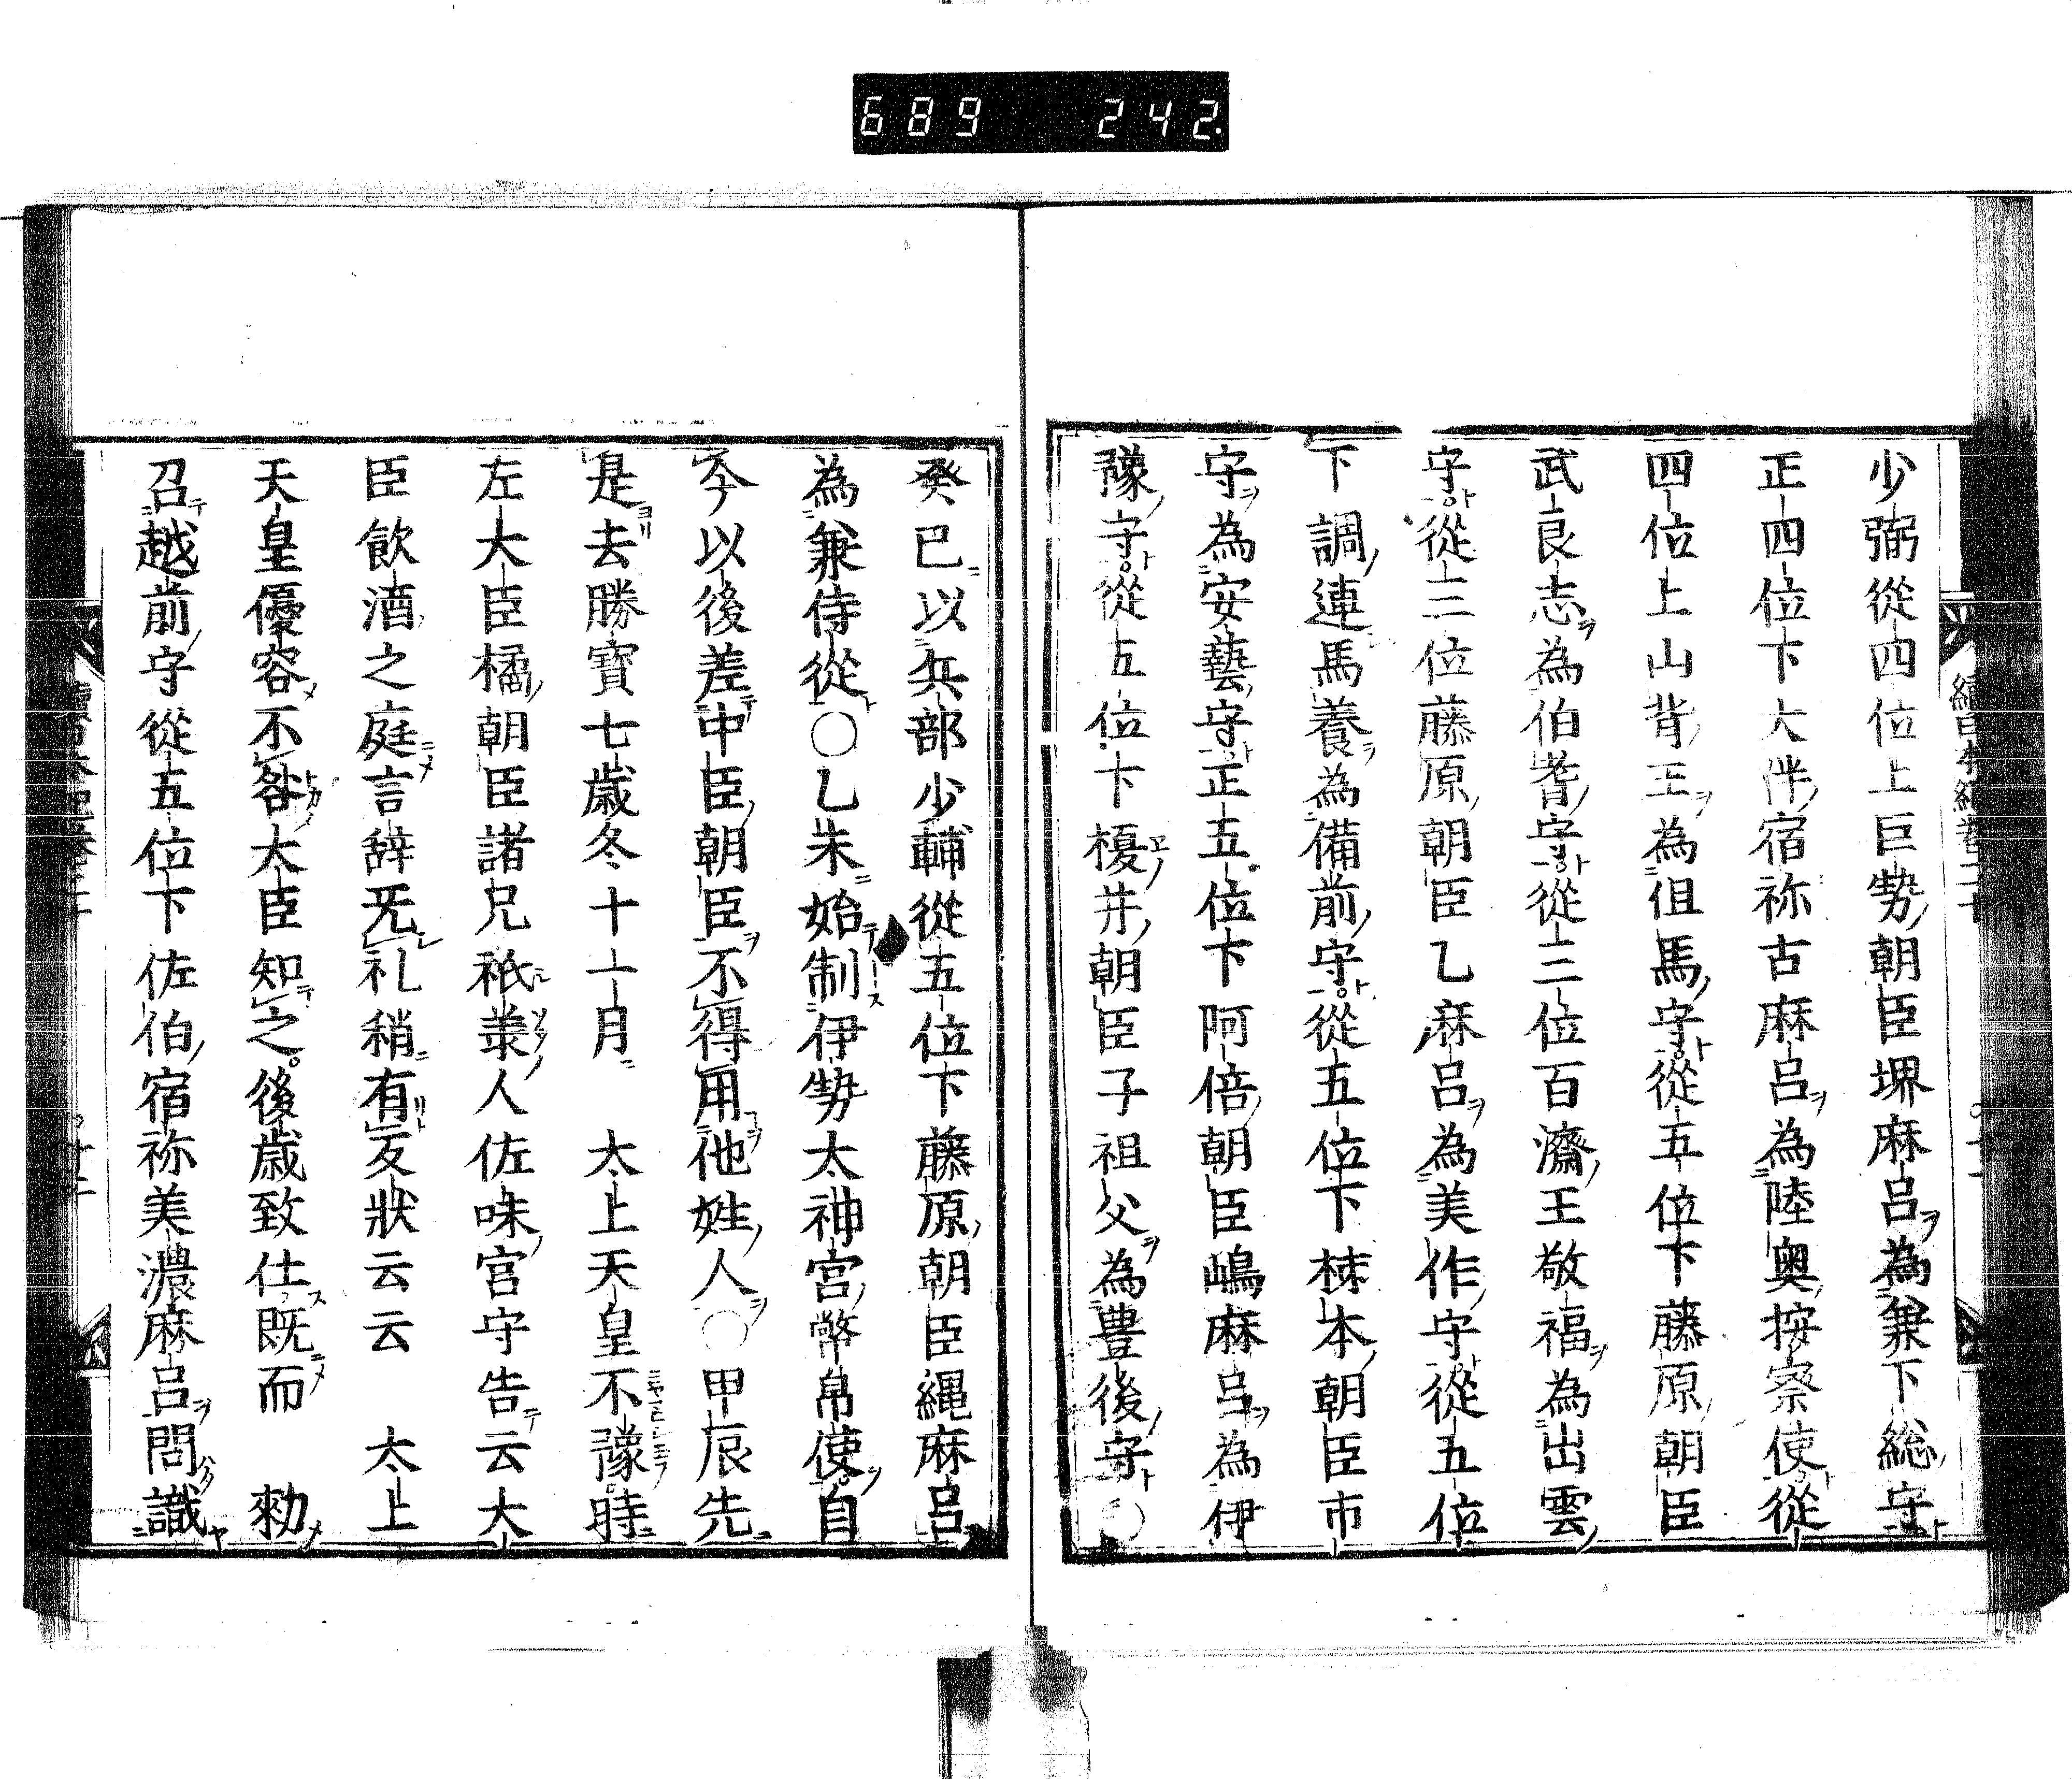 689 242.
少弼從四位上巨勢朝臣堺麻呂為兼下総守
正四位下大伴宿祢古麻呂為陸奥按察使從
四位上山背王為伹馬守從五位下藤原朝臣
武良志為伯耆守從三位百濟王敬福為出雲
守從三位藤原朝臣乙麻呂為美作守從五位
下調連馬養為備前守從五位下栜本朝臣市
守為安藝守正五位下阿倍朝臣嶋麻呂為伊
豫守從五位下榎井朝臣子祖父為豊後守〇
癸巳以兵部少輔從五位下藤原朝臣縄麻呂
為兼侍從〇乙未始制伊勢太神宮幣帛使自
今以後差中臣朝臣不得用他姓人〇甲辰先
是去勝寳七歳冬十一月太上天皇不豫時
左大臣橘朝臣諸兄祇業人佐味宮守告云大
臣飲酒之庭言辞旡礼稍有反狀云云太上
天皇優容不咎大臣知之後歳致仕既而勑
召越前守從五位下佐伯宿祢美濃麻呂問識